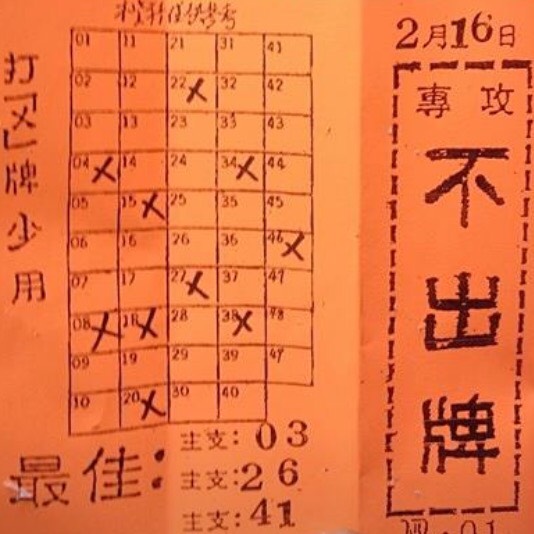 打「X」牌少用
01 11 21 31 41
02 12 22 32 42
03 13 23 33 43
04 14 24 34 44
05 15 25 35 45
06 16 26 36 46
07 17 27 37 47
08 18 28 38 48
09 19 29 39 49
10 20 30 40
最佳：
主支：03
主支：26
主支：41
2月16日
專攻
不出牌